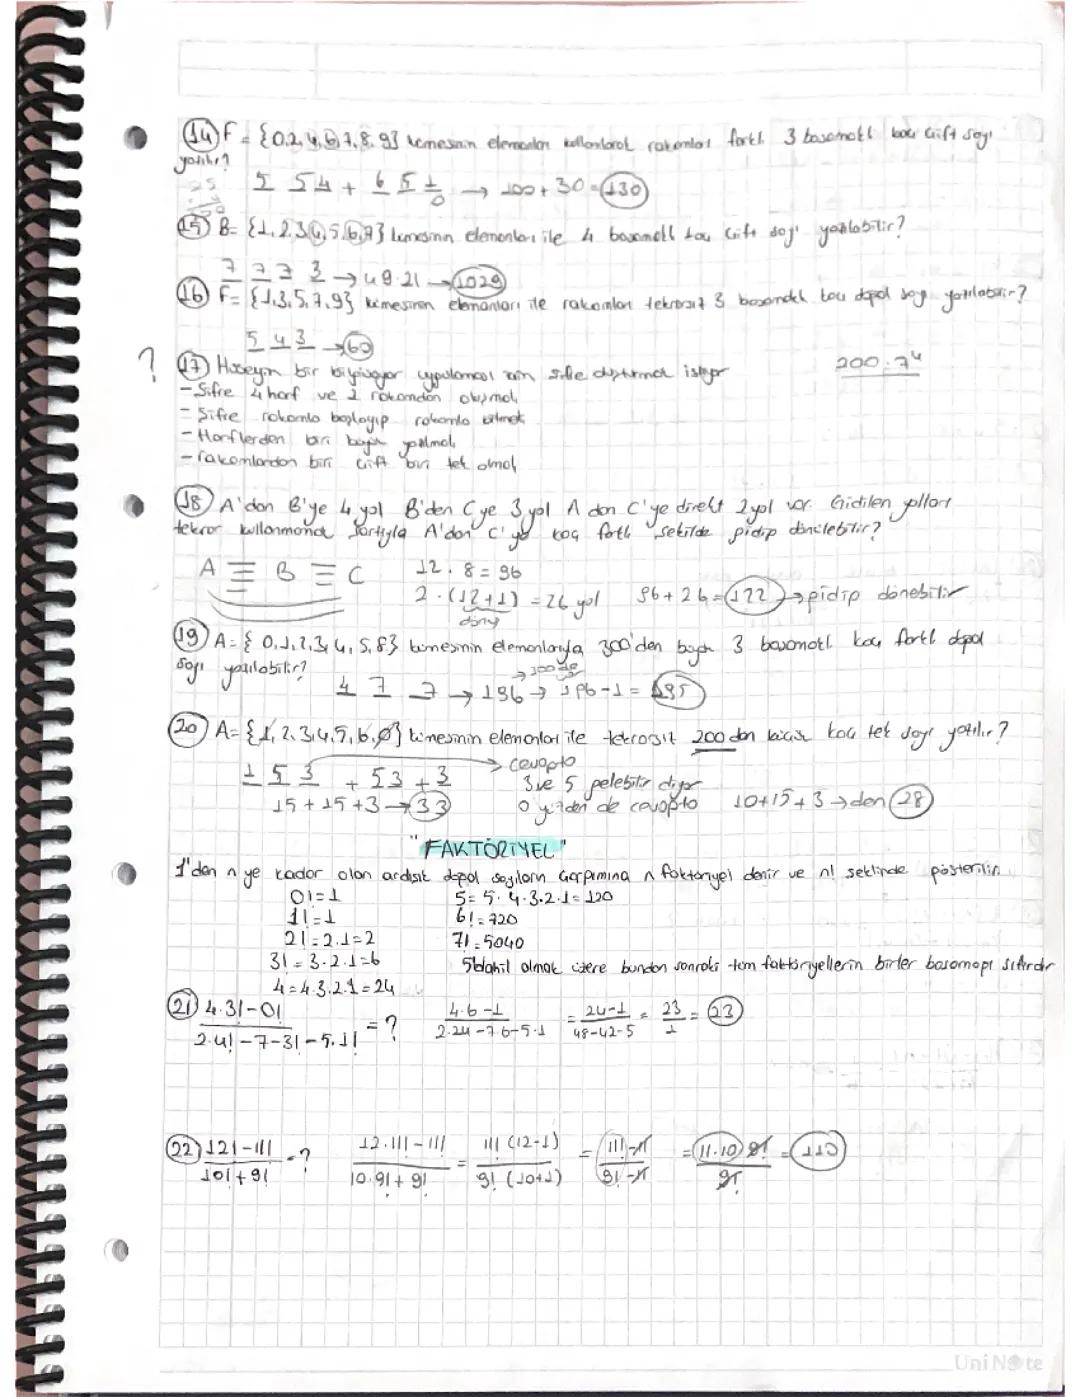 14) F = {0,2,4,6,7,8,9} kümesinin elemanları kullanılarak rakamları farklı 3 basamaklı kaç çift sayı
yazılır?
5 5 4 + 6 5 1 → 100 + 30 = 130
0
15) B = {1,2,3,4,5,6,7} kümesinin elemanları ile 4 basamaklı kaç çift sayı yazılabilir?
7 7 7 3 → 49.21 → 1029
16) F = {1,3,5,7,9} kümesinin elemanları ile rakamları tekrarsız 3 basamaklı kaç doğal sayı yazılabilir?
5 4 3 → 60
? 17) Hüseyin bir bilgisayar uygulaması için şifre oluşturmak istiyor
200.7⁴
- Şifre 4 harf ve 2 rakamdan oluşmalı
- Şifre rakamla başlayıp rakamla bitmeli
- Harflerden biri büyük yazılmalı
- rakamlardan biri çift biri tek olmalı
18) A'dan B'ye 4 yol B'den C ye 3 yol A dan C'ye direkt 2 yol var. Gidilen yolları
tekrar kullanmamak şartıyla A'dan C'ye kaç farklı şekilde gidip dönülebilir?
A B C
12 . 8 = 96
2 . (12+1) = 26 yol
dönüş
96 + 26 = 122 → gidip dönebilir
19) A = {0,1,2,3,4,5,8} kümesinin elemanlarıyla 300'den büyük 3 basamaklı kaç farklı doğal
sayı yazılabilir?
4 7 7 → 196 → 196-1 = 195
20) A = {1,2,3,4,5,6,0} kümesinin elemanları ile tekrarsız 200 den küçük kaç tek sayı yazılır?
1 5 3 + 5 3 + 3
15 + 15 + 3 → 33
→ cevapta
3 ve 5 gelebilir diyor
o yüzden de cevapta 10+15+3 → den 28
"FAKTÖRİYEL"
1'den n ye kadar olan ardışık doğal sayıların çarpımına n faktöriyel denir ve n! şeklinde gösterilir.
0! = 1
5 = 5.4.3.2.1 = 120
1! = 1
6! = 720
2! = 2.1 = 2
7! = 5040
3! = 3.2.1 = 6
5 dahil olmak üzere bundan sonraki tüm faktöriyellerin birler basamağı sıfırdır
4 = 4.3.2.1 = 24
21) 4.3!-0! / 2.4!-7-3!-5.1! = ?
4.6-1 / 2.24-7.6-5.1 = 24-1 / 48-42-5 = 23 / 1 = 23
22) 12!-11! / 10!+9! = ?
12.11!-11! / 10.9!+9! = 11!(12-1) / 9!(10+1) = 11!-11 / 9!-11 = 11.10 9! / 9! = 110
UniNote